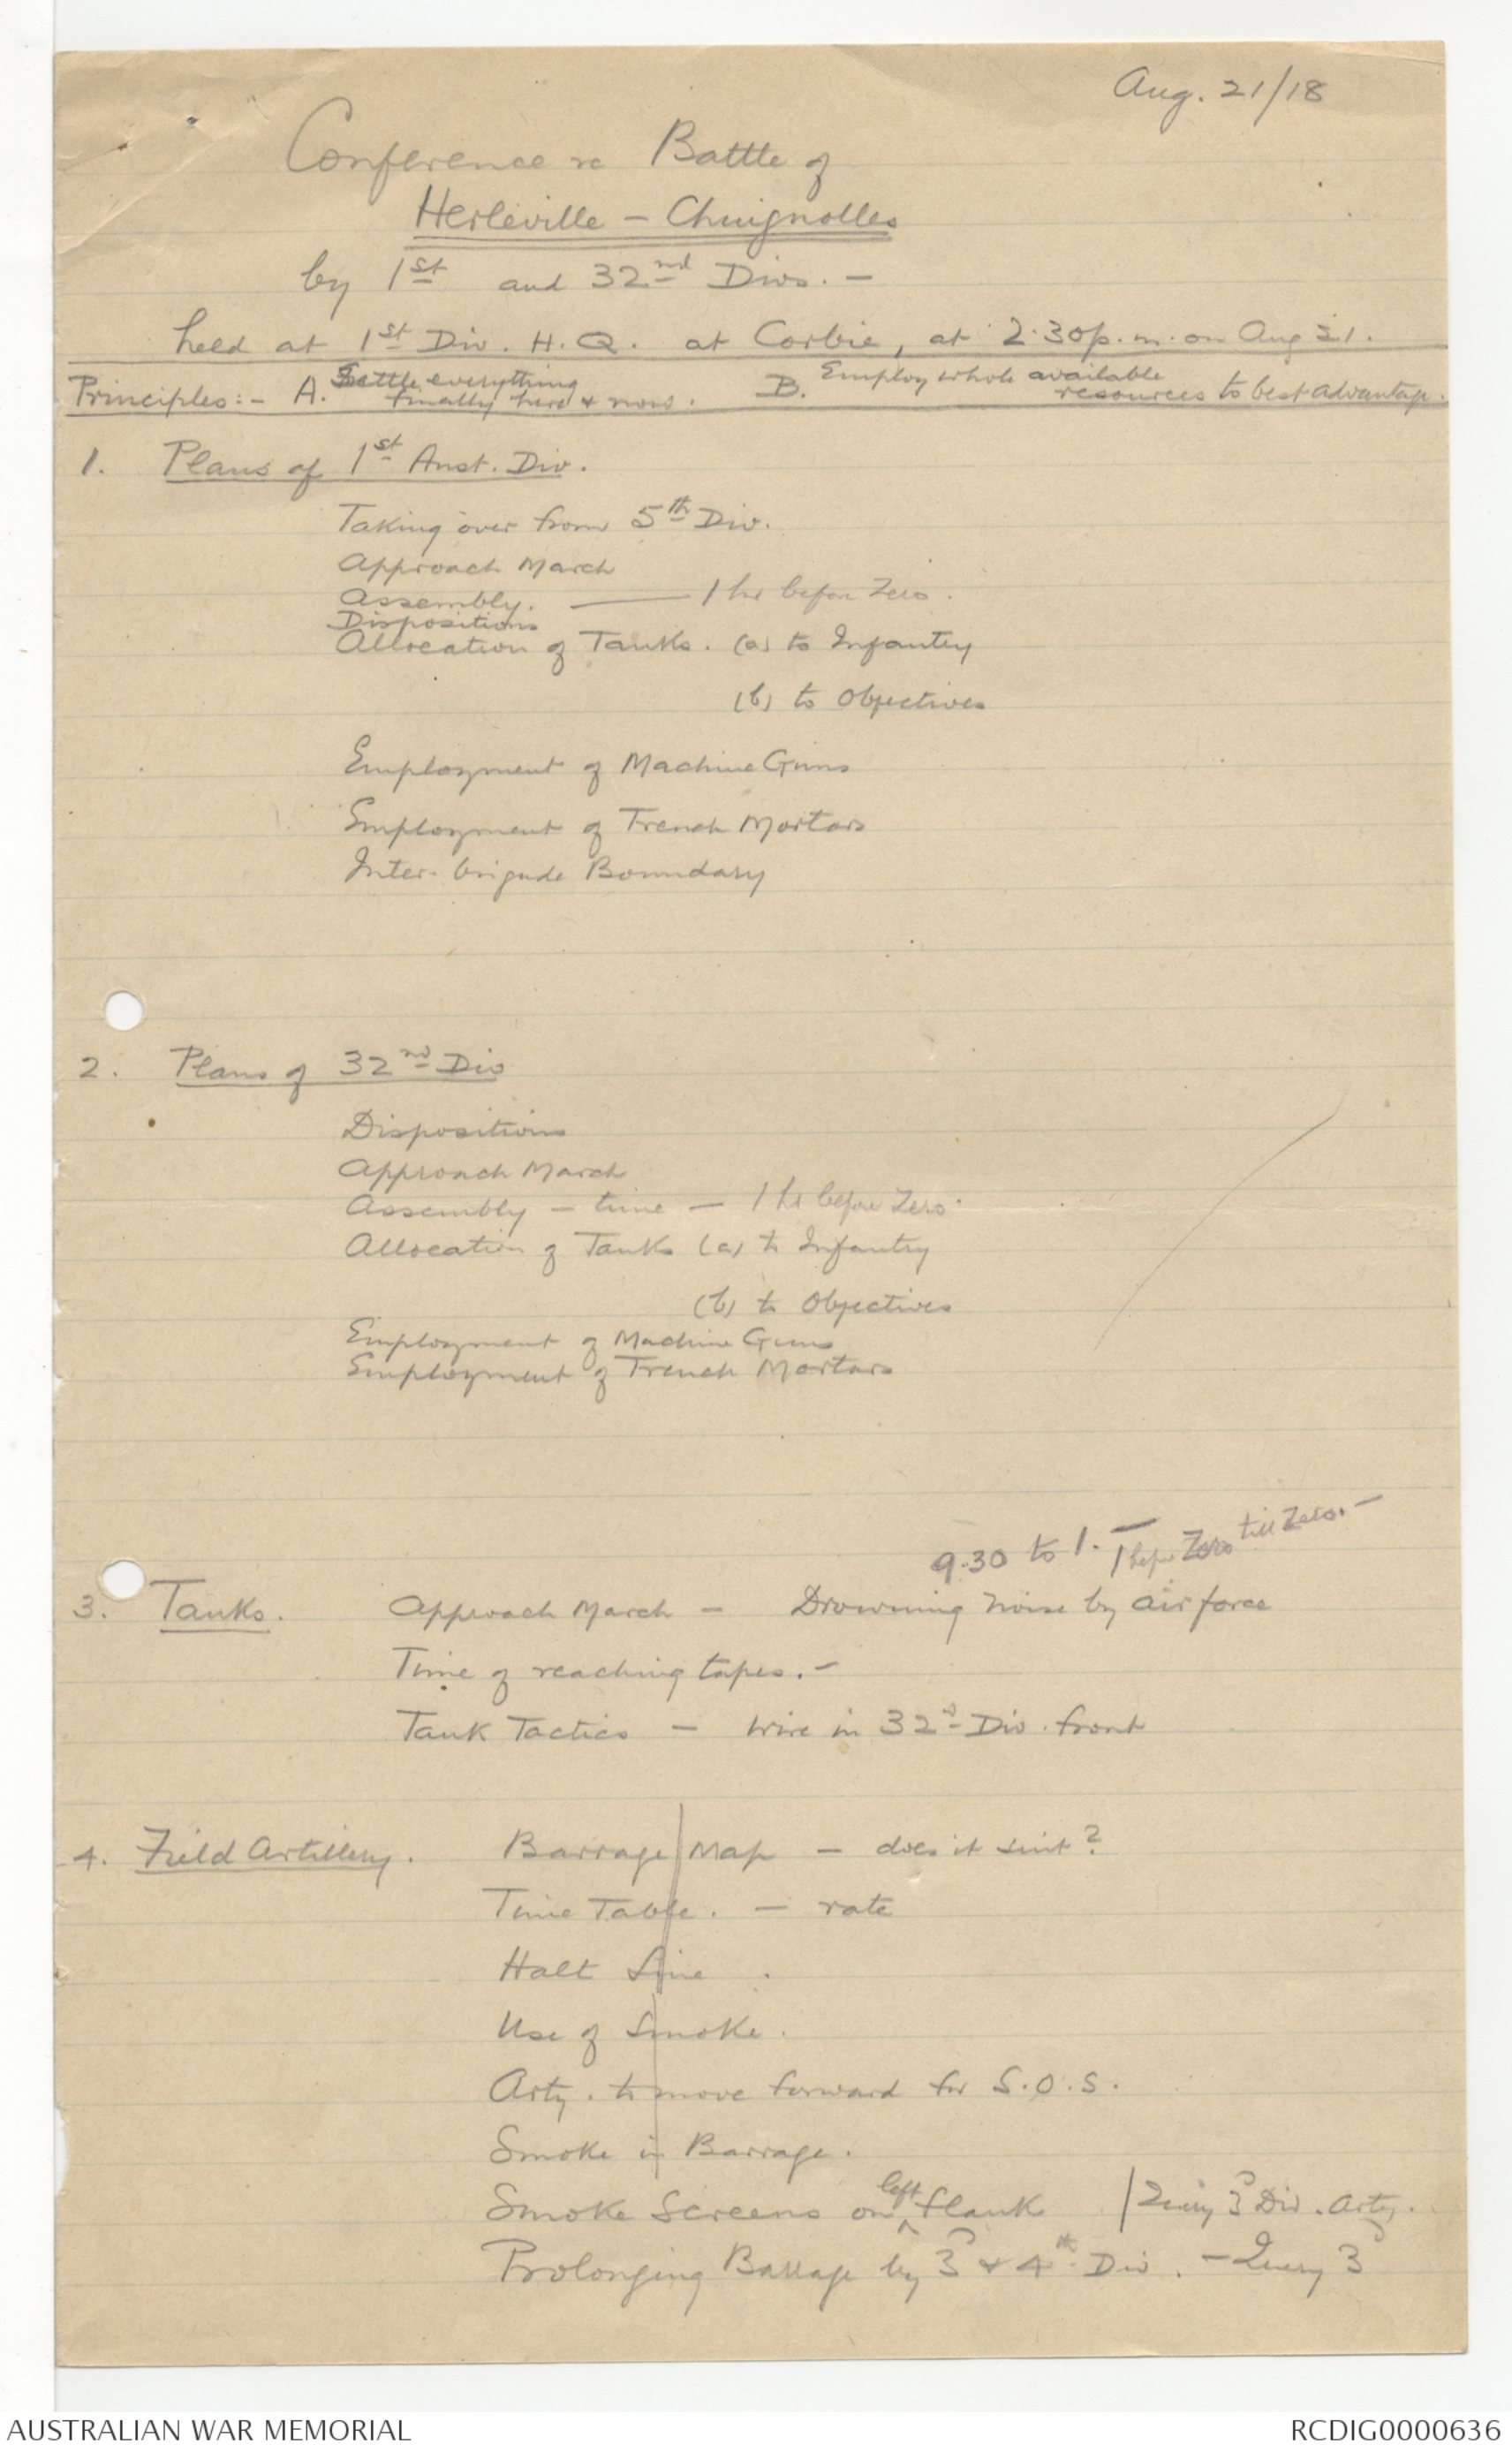 Aug. 21/18
Conference re Battle of
Herleville - Chuignolles
by 1st and 32nd Divs. -
held at 1st Div. H.Q. at Corbie, at 2.30p.m. on Aug 21.
Principles:- A. Settle everything finally here & now. B. Employ whole available resources to best advantage.
1. Plans of 1st Aust. Div.
Taking over from 5th Div.
Approach March
Assembly. - 1 hr before Zero.
Dispositions
Allocation of Tanks. (a) to Infantry
(b) to Objectives
Employment of Machine Guns
Employment of Trench Mortars
Inter-brigade Boundary
2. Plans of 32nd Div
Dispositions
Approach March
Assembly - time - 1 hr before Zero.
Allocation of Tanks (a) to Infantry
(b) to Objectives
Employment of Machine Guns
Employment of Trench Mortars
9.30 to 1. - 1 before Zero till Zero. -
3. Tanks. Approach March - Drowning noise by air force
Time of reaching tapes. -
Tank Tactics - wire in 32d Div. front
4. Field Artillery. Barrage Map - does it suit?
Time Table. - rate
Halt Line.
Use of Smoke.
Arty. to move forward for S.O.S.
Smoke in Barrage.
Smoke Screens on left flank / Query 3d Div. Arty.
Prolonging Barrage by 3d & 4th Div. - Query 3d
AUSTRALIAN WAR MEMORIAL
RCDIG0000636